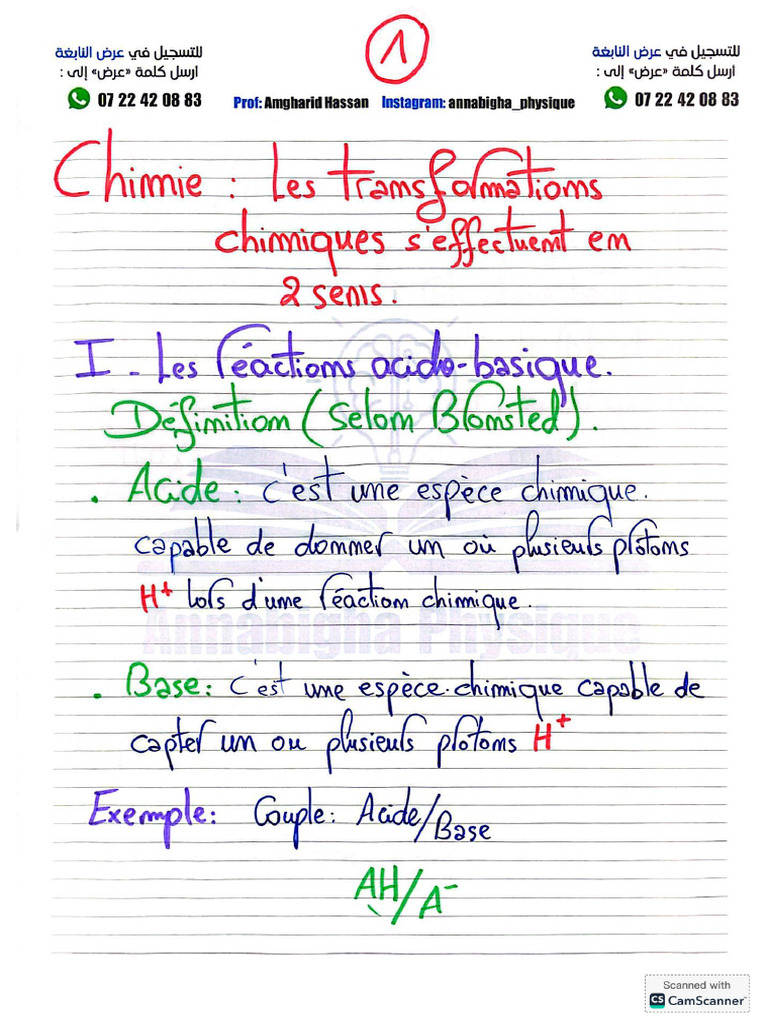 1
للتسجيل في عرض النابغة
ارسل كلمة «عرض» إلى :
07 22 42 08 83
Prof: Amgharid Hassan Instagram: annabigha_physique
للتسجيل في عرض النابغة
ارسل كلمة «عرض» إلى :
07 22 42 08 83
Chimie : Les transformations
chimiques s'effectuent en
2 sens.
I - Les réactions acido-basique.
Définition (selon Bronsted).
. Acide : c'est une espèce chimique.
capable de donner un où plusieurs protons
H+ lors d'une réaction chimique.
Annabigha Physique
. Base : c'est une espèce chimique capable de
capter un ou plusieurs protons H+
Exemple: Couple: Acide/Base
AH/A-
Scanned with
CS CamScanner